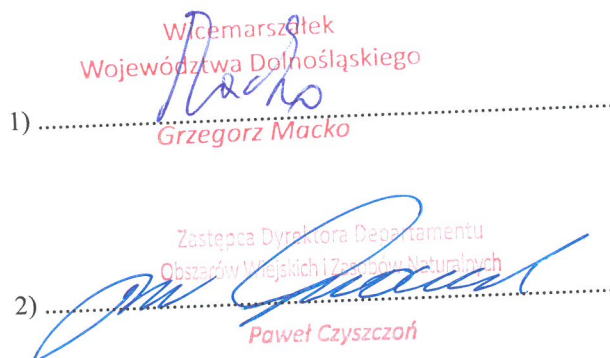 Wicemarszałek
Województwa Dolnośląskiego
1)
Grzegorz Macko
Zastępca Dyrektora Departamentu
Obszarów Wiejskich i Zasobów Naturalnych
2)
Paweł Czyszczoń